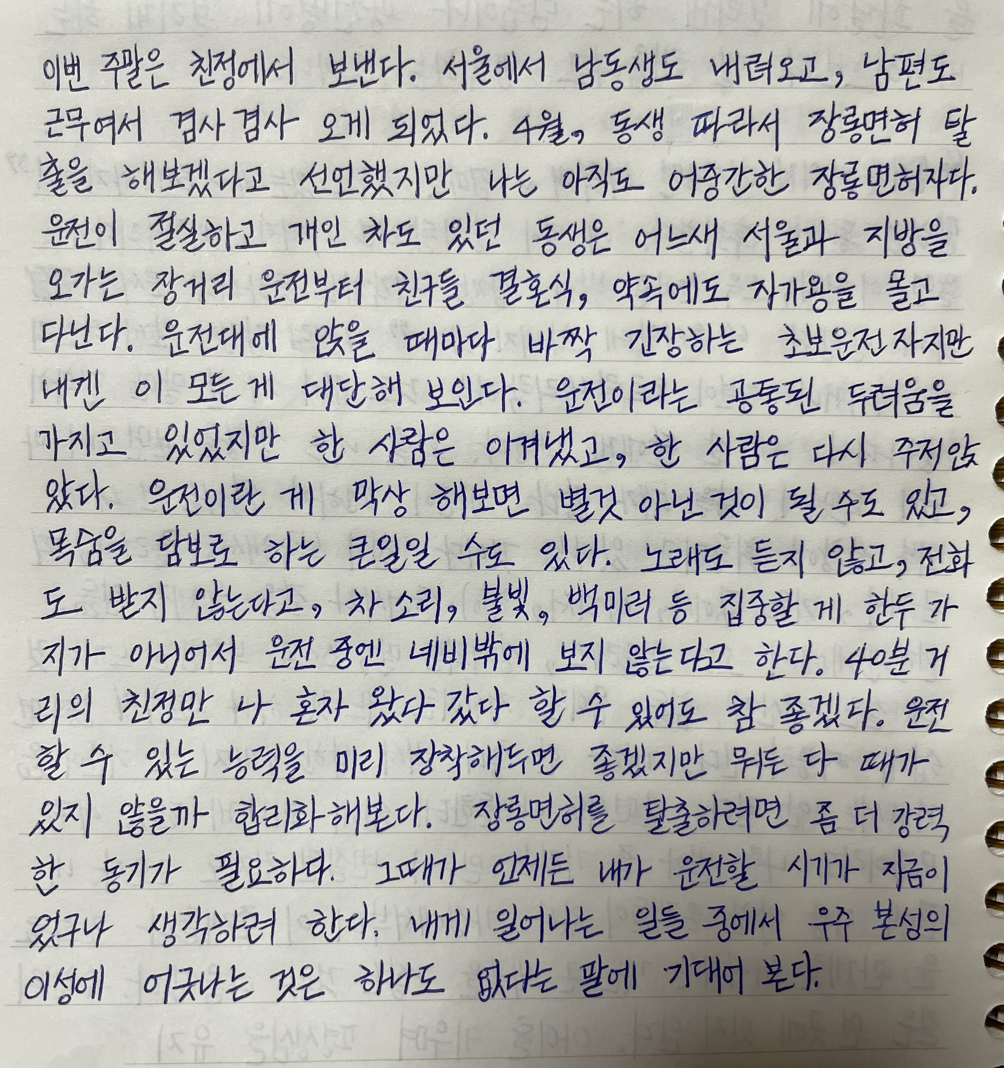 이번 주말은 친정에서 보낸다. 서울에서 남동생도 내려오고, 남편도
근무여서 겸사겸사 오게 되었다. 4월, 동생 따라서 장롱면허 탈
출을 해보겠다고 선언했지만 나는 아직도 어중간한 장롱면허자다.
운전이 절실하고 개인 차도 있던 동생은 어느새 서울과 지방을
오가는 장거리 운전부터 친구들 결혼식, 약속에도 자가용을 몰고
다닌다. 운전대에 앉을 때마다 바짝 긴장하는 초보운전자지만
내겐 이 모든 게 대단해 보인다. 운전이라는 공통된 두려움을
가지고 있었지만 한 사람은 이겨냈고, 한 사람은 다시 주저앉
았다. 운전이란 게 막상 해보면 별것 아닌 것이 될 수도 있고,
목숨을 담보로 하는 큰일일 수도 있다. 노래도 듣지 않고, 전화
도 받지 않는다고, 차 소리, 불빛, 백미러 등 집중할 게 한두 가
지가 아니어서 운전 중엔 네비밖에 보지 않는다고 한다. 40분 거
리의 친정만 나 혼자 왔다 갔다 할 수 있어도 참 좋겠다. 운전
할 수 있는 능력을 미리 장착해두면 좋겠지만 뭐든 다 때가
있지 않을까 합리화해본다. 장롱면허를 탈출하려면 좀 더 강력
한 동기가 필요하다. 그때가 언제든 내가 운전할 시기가 지금이
었구나 생각하려 한다. 내게 일어나는 일들 중에서 우주 본성의
이성에 어긋나는 것은 하나도 없다는 말에 기대어 본다.